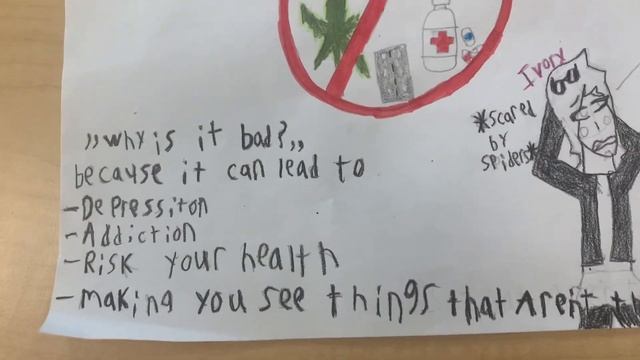 „why is it bad?„
because it can lead to
-Depressiton
-Addiction
-Risk your health
-making you see things that Arent
Ivory
*scared
by
spiders*